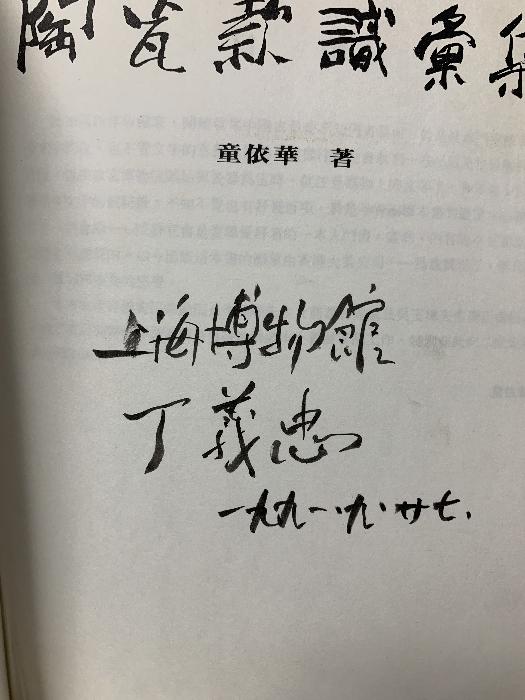 陶瓷款識彙集
童依華 著
上海博物館
丁義忠
一九九一·九·廿七.